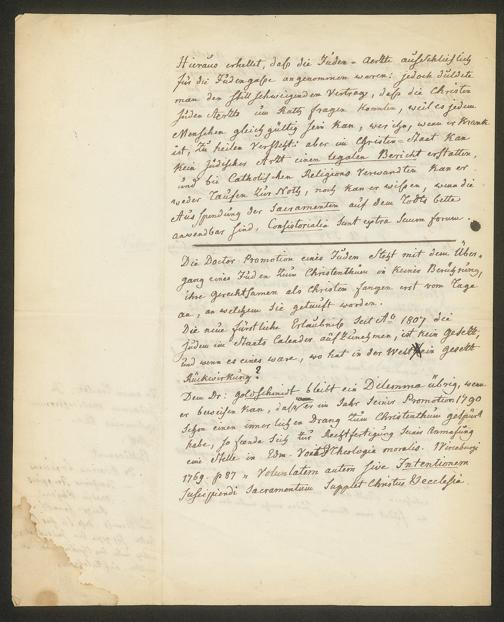 Hieraus erhellet, daß die Juden-Aerzte ausschließlich
für die Judengaße angenommen waren: jedoch duldete
man den stillschweigenden Vertrag, daß die Christen
Juden Aerzte um Rath fragen konnten, weil es jedem
Menschen gleichgültig sein kan, wer ihn, wenn er krank
ist, zu heilen versteht: aber im Christen-Staat kan
kein jüdischer Arzt einen legalen Bericht erstatten,
und bei Catholischen Religions Verwandten kan er
weder Taufen zur Noth, noch kan er wißen, wenn die
Ausspendung der Sacramenten auf dem Todts bette
anwendbar sind, Consistorialia sunt extra suum forum.
Die Doctor Promotion eines Juden steht mit dem Über-
gang eines Juden zum Christenthum in keiner Berührung,
ihre Gerechtsamen als Christen fangen erst vom Tage
an, an welchem sie getauft worden.
Die neue fürstliche Erlaubniß seit Ao 1807 die
Juden im Staats Calender aufzunehmen, ist kein Gesetz,
und wenn es eines ware, wo hat in der Welt ein Gesetz
Rückwirkung?
Dem Dr: Goldschmidt bleibt ein Dilemma übrig, wenn
er beweisen kan, daß er im Jahr seiner Promotion 1790
schon einen innerlichen Drang zum Christenthum gespürt
habe, so fände sich zur Rechtfertigung seiner Anmasung
eine Stelle in Edm. Voit Theologia moralis. Wirceburgi
1769. p 87 „ Voluntatem autem sive Intentionem
suscipiendi Sacramentum supplet Christus & Ecclesia.